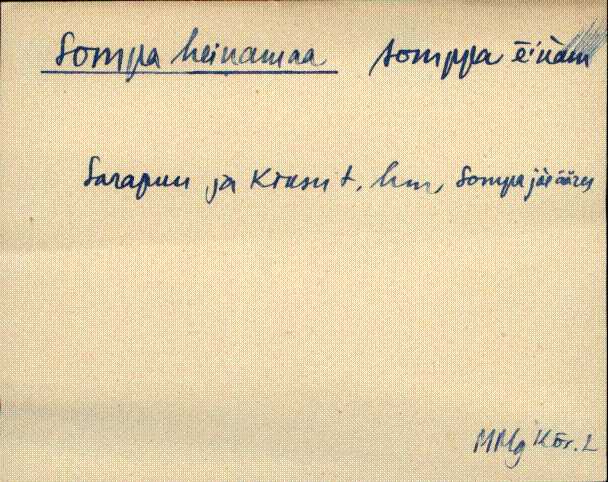 Sompa heinamaa somppa ēi'nam
Sarapuu ja Krusu t. hm, Sompa jõe ääres
MMg Kõr. L